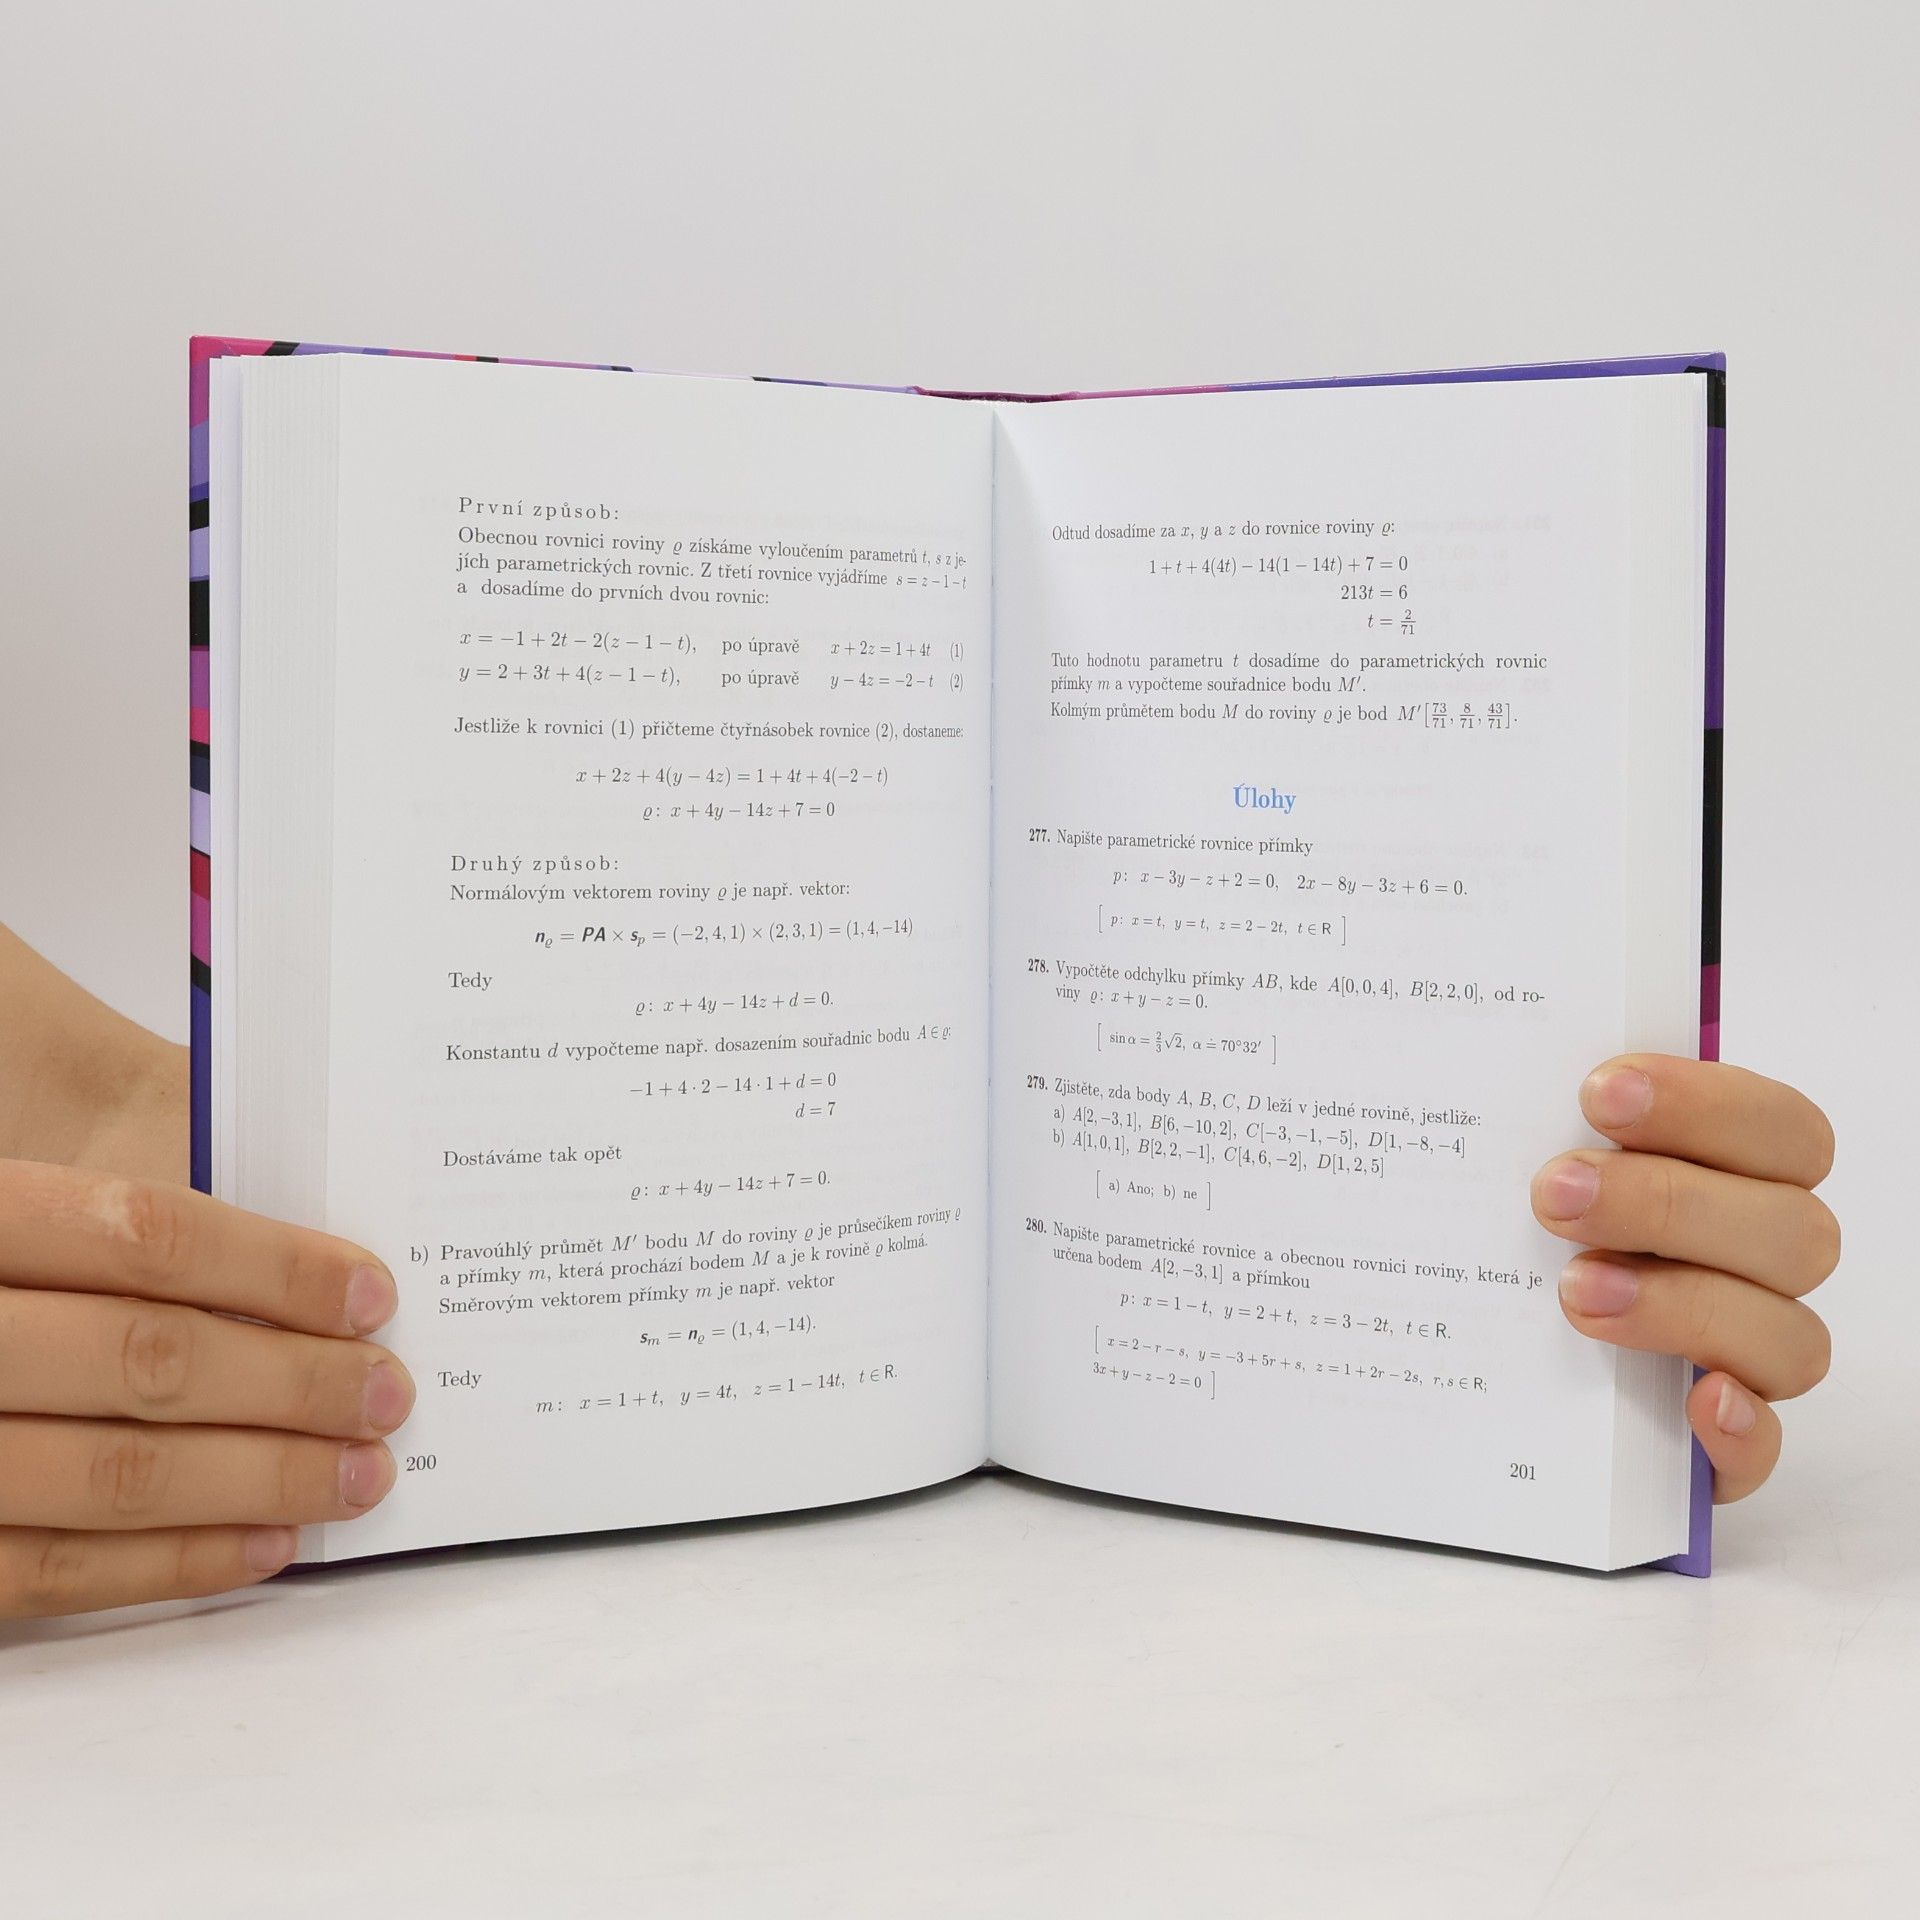 První způsob:
Obecnou rovnici roviny ϱ získáme vyloučením parametrů t, s z je-
jích parametrických rovnic. Z třetí rovnice vyjádříme s = z − 1 − t
a dosadíme do prvních dvou rovnic:
x = −1 + 2t − 2(z − 1 − t), po úpravě x + 2z = 1 + 4t (1)
y = 2 + 3t + 4(z − 1 − t), po úpravě y − 4z = −2 − t (2)
Jestliže k rovnici (1) přičteme čtyřnásobek rovnice (2), dostaneme:
x + 2z + 4(y − 4z) = 1 + 4t + 4(−2 − t)
ϱ: x + 4y − 14z + 7 = 0
Druhý způsob:
Normálovým vektorem roviny ϱ je např. vektor:
nϱ = PA × sp = (−2, 4, 1) × (2, 3, 1) = (1, 4, −14)
Tedy
ϱ: x + 4y − 14z + d = 0.
Konstantu d vypočteme např. dosazením souřadnic bodu A ∈ ϱ:
−1 + 4 · 2 − 14 · 1 + d = 0
d = 7
Dostáváme tak opět
ϱ: x + 4y − 14z + 7 = 0.
b) Pravoúhlý průmět M′ bodu M do roviny ϱ je průsečíkem roviny ϱ
a přímky m, která prochází bodem M a je k rovině ϱ kolmá.
Směrovým vektorem přímky m je např. vektor
sm = nϱ = (1, 4, −14).
Tedy
m: x = 1 + t, y = 4t, z = 1 − 14t, t ∈ R.
200
Odtud dosadíme za x, y a z do rovnice roviny ϱ:
1 + t + 4(4t) − 14(1 − 14t) + 7 = 0
213t = 6
t = 2/71
Tuto hodnotu parametru t dosadíme do parametrických rovnic
přímky m a vypočteme souřadnice bodu M′.
Kolmým průmětem bodu M do roviny ϱ je bod M′[73/71, 8/71, 43/71].
Úlohy
277. Napište parametrické rovnice přímky
p: x − 3y − z + 2 = 0, 2x − 8y − 3z + 6 = 0.
[ p: x = t, y = t, z = 2 − 2t, t ∈ R ]
278. Vypočtěte odchylku přímky AB, kde A[0, 0, 4], B[2, 2, 0], od ro-
viny ϱ: x + y − z = 0.
[ sin α = 2/3 √2, α ≐ 70°32′ ]
279. Zjistěte, zda body A, B, C, D leží v jedné rovině, jestliže:
a) A[2, −3, 1], B[6, −10, 2], C[−3, −1, −5], D[1, −8, −4]
b) A[1, 0, 1], B[2, 2, −1], C[4, 6, −2], D[1, 2, 5]
[ a) Ano; b) ne ]
280. Napište parametrické rovnice a obecnou rovnici roviny, která je
určena bodem A[2, −3, 1] a přímkou
p: x = 1 − t, y = 2 + t, z = 3 − 2t, t ∈ R.
[ x = 2 − r − s, y = −3 + 5r + s, z = 1 + 2r − 2s, r, s ∈ R;
3x + y − z − 2 = 0 ]
201